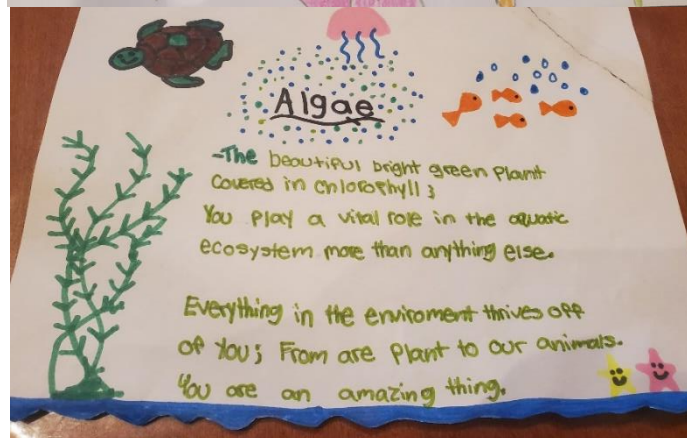 Algae
-The beautiful bright green plant
covered in chlorophyll;
You play a vital role in the aquatic
ecosystem more than anything else.
Everything in the enviroment thrives off
of You; From are Plant to our animals.
You are an amazing thing.